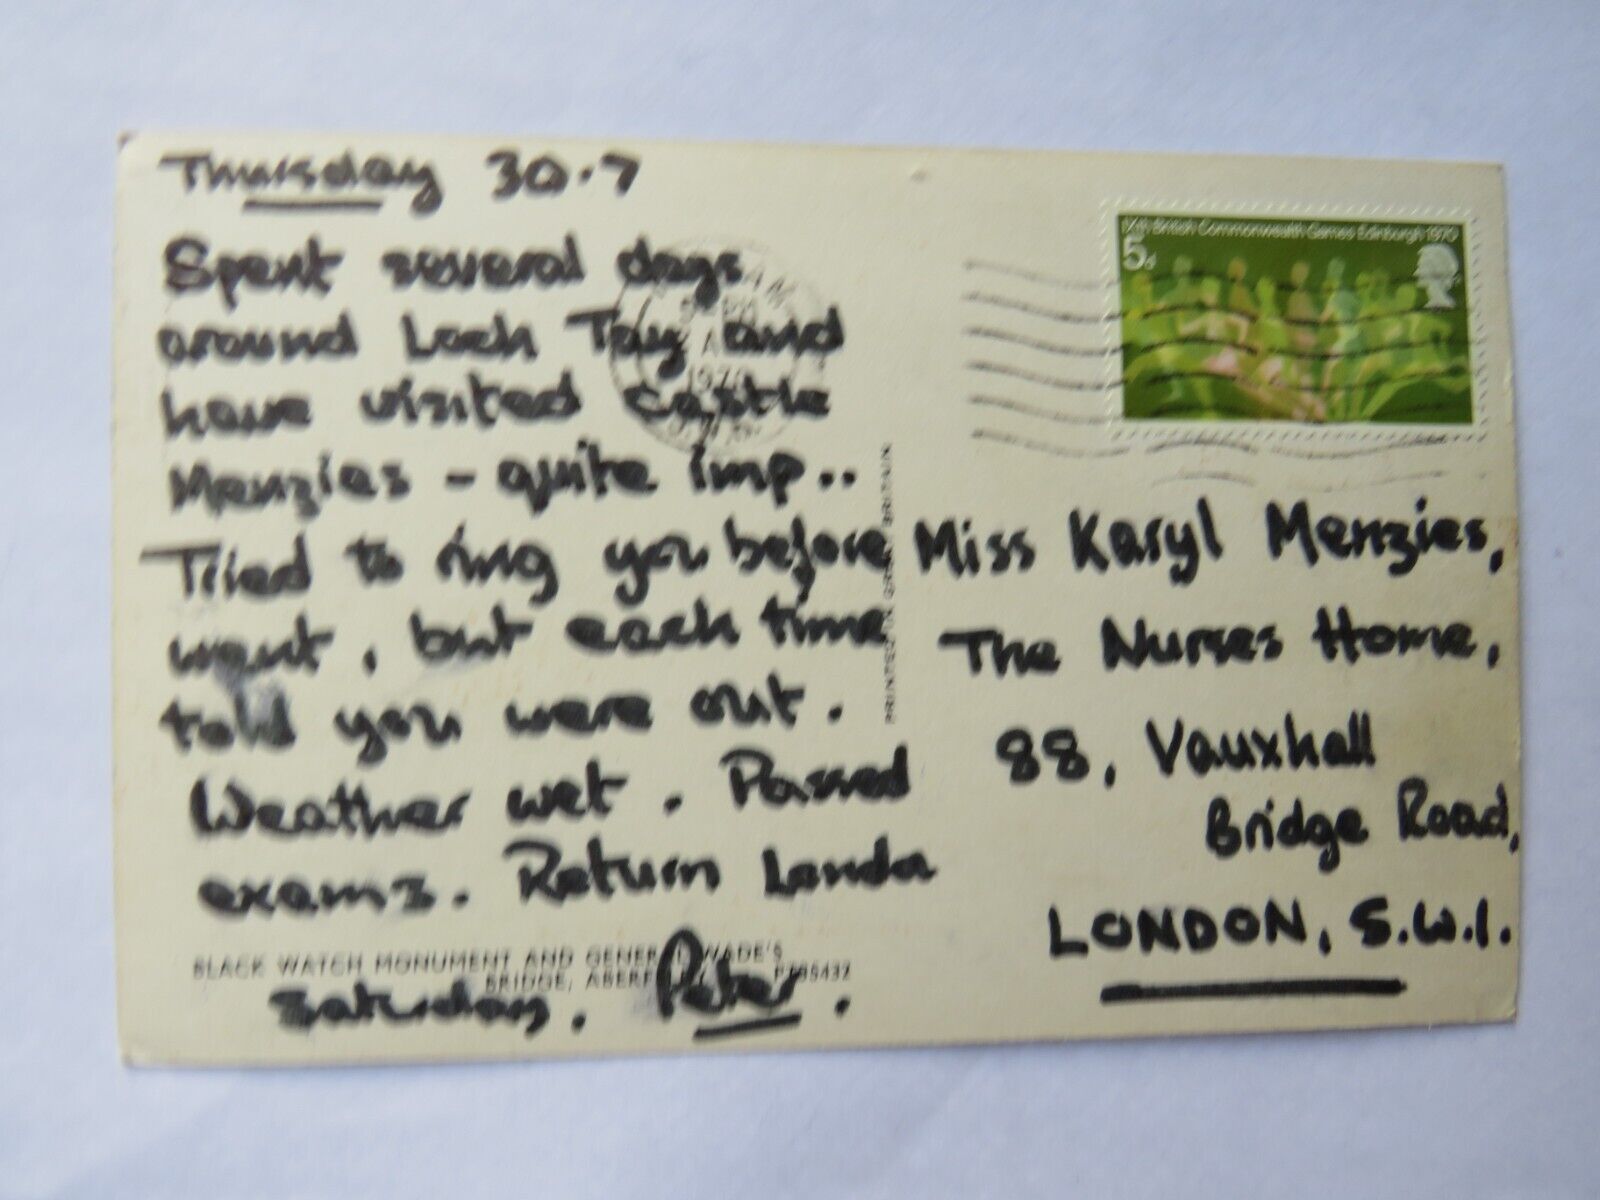 Thursday 30.7
Spent several days
around Loch Tay and
have visited Castle
Menzies - quite imp..
Tried to ring you before
went, but each time
told you were out.
Weather wet. Passed
exams. Return London
Saturday. Peter.
BLACK WATCH MONUMENT AND GENERAL WADE'S
BRIDGE, PT85432
PRINTED IN GREAT BRITAIN
1970
IXth British Commonwealth Games Edinburgh 1970
5d
Miss Karyl Menzies,
The Nurses Home,
88, Vauxhall
Bridge Road,
LONDON, S.W.1.